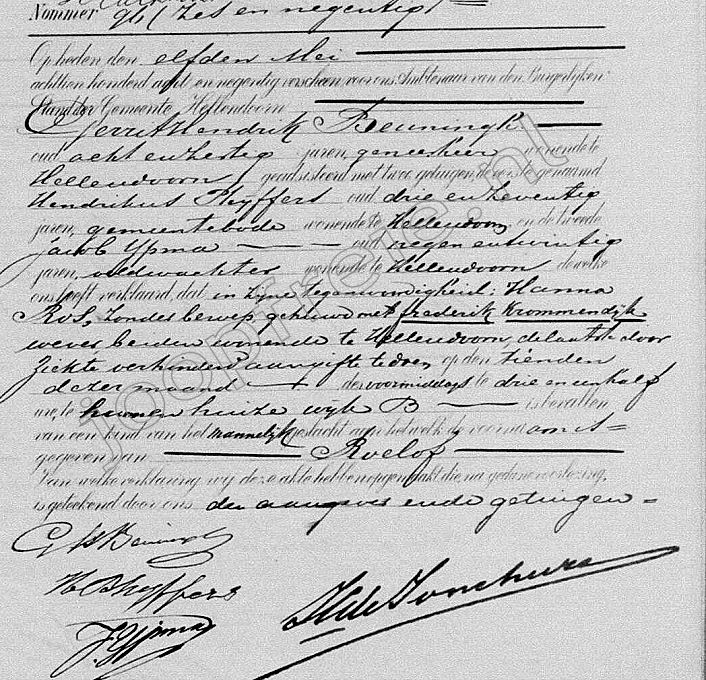 Nommer 96 (Zes en negentig)
Op heden den elfden Mei
achttien honderd acht en negentig verscheen voor ons Ambtenaar van den Burgerlijken
Stand der Gemeente Hellendoorn
Gerrit Hendrik Beuningk
oud acht en dertig jaren, geneesheer wonende te
Hellendoorn, geadsisteerd met twee getuigen, de eerste genaamd
Hendrikus Phyffers oud drie en zeventig
jaren, gemeentebode wonende te Hellendoorn en de tweede
Jacob Ypma oud negen en twintig
jaren, veldwachter wonende te Hellendoorn dewelke
ons heeft verklaard, dat in zijne tegenwoordigheid: Hanna
Ros, zonder beroep, gehuwd met Frederik Krommendijk
wever beiden wonende te Hellendoorn, de laatste door
ziekte verhinderd aangifte te doen, op den tienden
dezer maand des voormiddags te drie en een half
ure, te hunnen huize wijk B is bevallen
van een kind van het mannelijk geslacht aan hetwelk de voornaam is
gegeven van Roelof
Van welke verklaring wij deze akte hebben opgemaakt die na gedane voorlezing,
is geteekend door ons den aangever en de getuigen
H Phyffers
J. Ypma
joopfreriks.nl